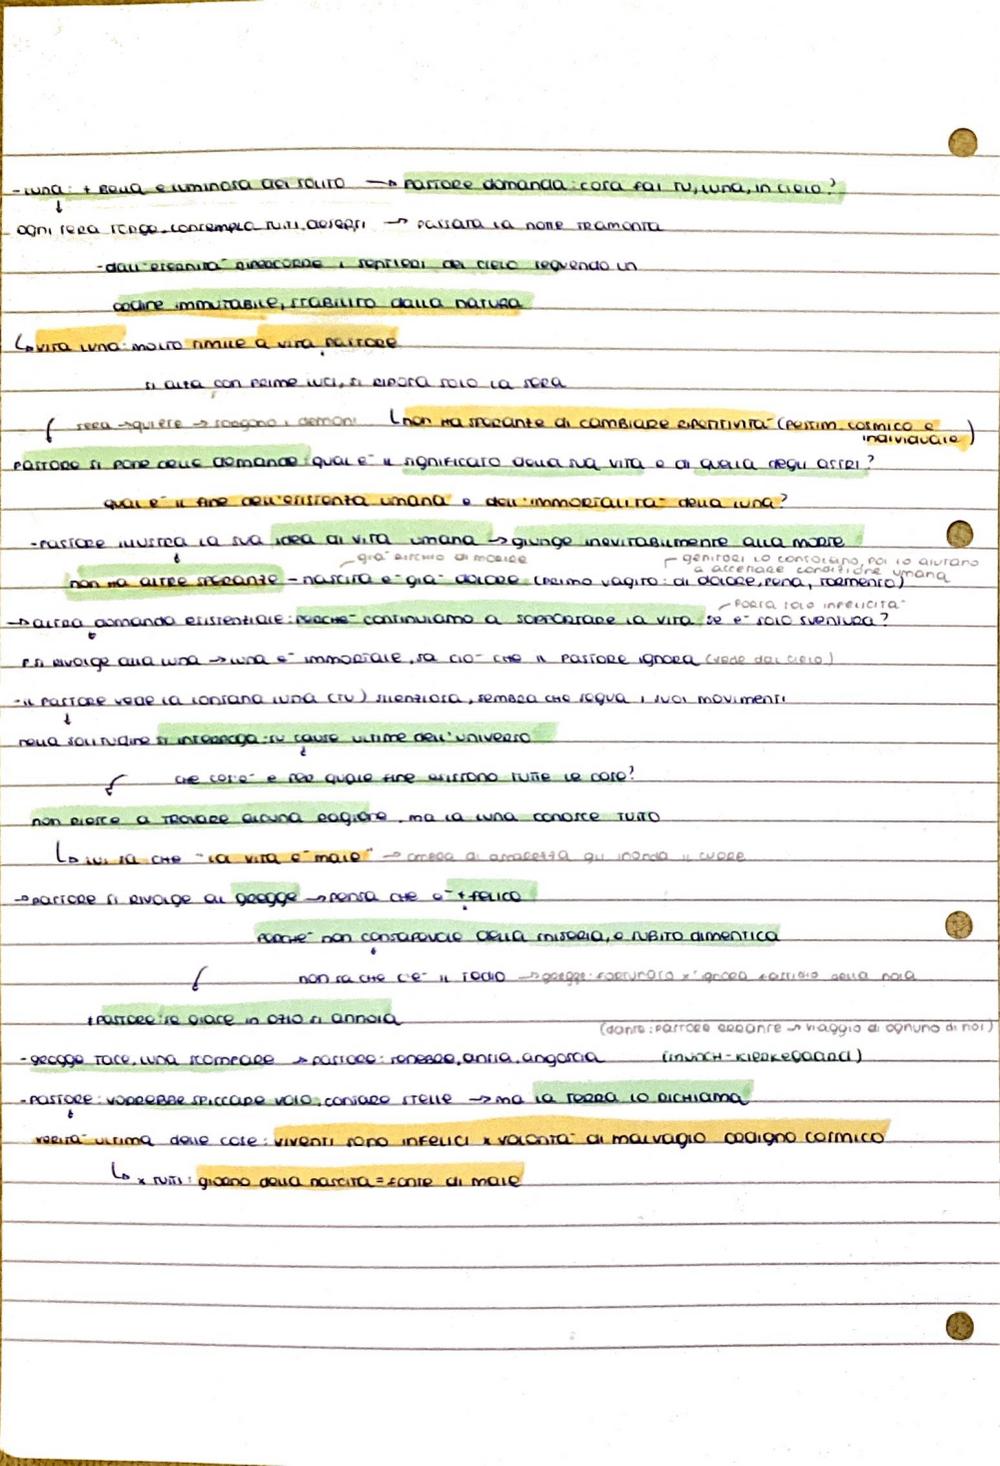 - luna: + bella e luminosa del solito → pastore domanda: cosa fai tu, luna, in cielo?
↓
ogni sera sorge, contempla tutti → passata la notte tramonta
- dall'eternità ripercorre i sentieri del cielo seguendo un
ordine immutabile, stabilito dalla natura
↳ vita luna: molto simile a vita pastore
si alza con prime luci, si riposa solo la sera
sera → quiete → sorgono i demoni ( non ha speranze di cambiare ripetitività (pessim. cosmico e
individuale)
pastore si pone delle domande: qual è il significato della sua vita e di quella degli astri?
qual è il fine dell'esistenza umana e dell'immortalità della luna?
- pastore illustra la sua idea di vita umana → giunge inevitabilmente alla morte
già rischio di morire genitori lo consolano, poi lo aiutano
a accettare condizione umana
non ha altre speranze - nascita è già dolore (primo vagito: di dolore, pena, tormento)
porta solo infelicità
→ altra domanda esistenziale: perché continuiamo a sopportare la vita se è solo sventura?
↓
P. si rivolge alla luna → luna è immortale, sa ciò che il pastore ignora (vede dal cielo)
- il pastore vede la lontana luna (tu) silenziosa, sembra che segua i suoi movimenti
↓
nella solitudine si interroga su cause ultime dell'universo
↓
che cos'è e per quale fine esistono tutte le cose?
non riesce a trovare alcuna ragione, ma la luna conosce tutto
↳ lui sa che "la vita è male" → ombra di amarezza gli inonda il cuore
→ pastore si rivolge al gregge → pensa che è + felice
↓
perché non consapevole della miseria, e subito dimentica
↓
non sa che c'è il tedio → gregge: fortunato x' ignora fastidio della noia
+ pastore: se giace in ozio si annoia
(dante: pastore errante → viaggio di ognuno di noi)
- gregge tace, luna scompare → pastore: tenebre, ansia, angoscia (munch - kierkegaard)
- pastore: vorrebbe spiccare volo, contare stelle → ma la terra lo richiama
↓
verità ultima delle cose: viventi sono infelici x volontà di malvagio disegno cosmico
↳ x tutti: giorno della nascita = fonte di male